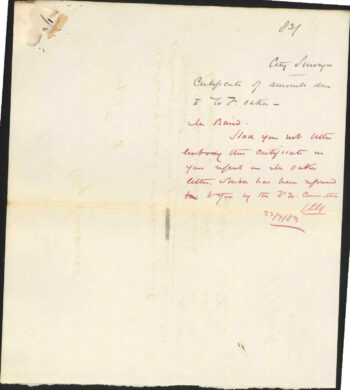 831
City Surveyor
Certificate of amounts due
to T. Oakes -
Mr Baird.
Had you not better
embody this certificate in
your report on Mr Oakes
letter, which has been referred
to you by the Committee
23/7/83